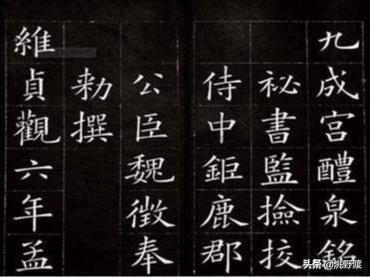 九成宫醴泉銘
祕書監撿挍
侍中鉅鹿郡
公臣魏徵奉
勑撰
維貞觀六年孟
头条@桃野渡